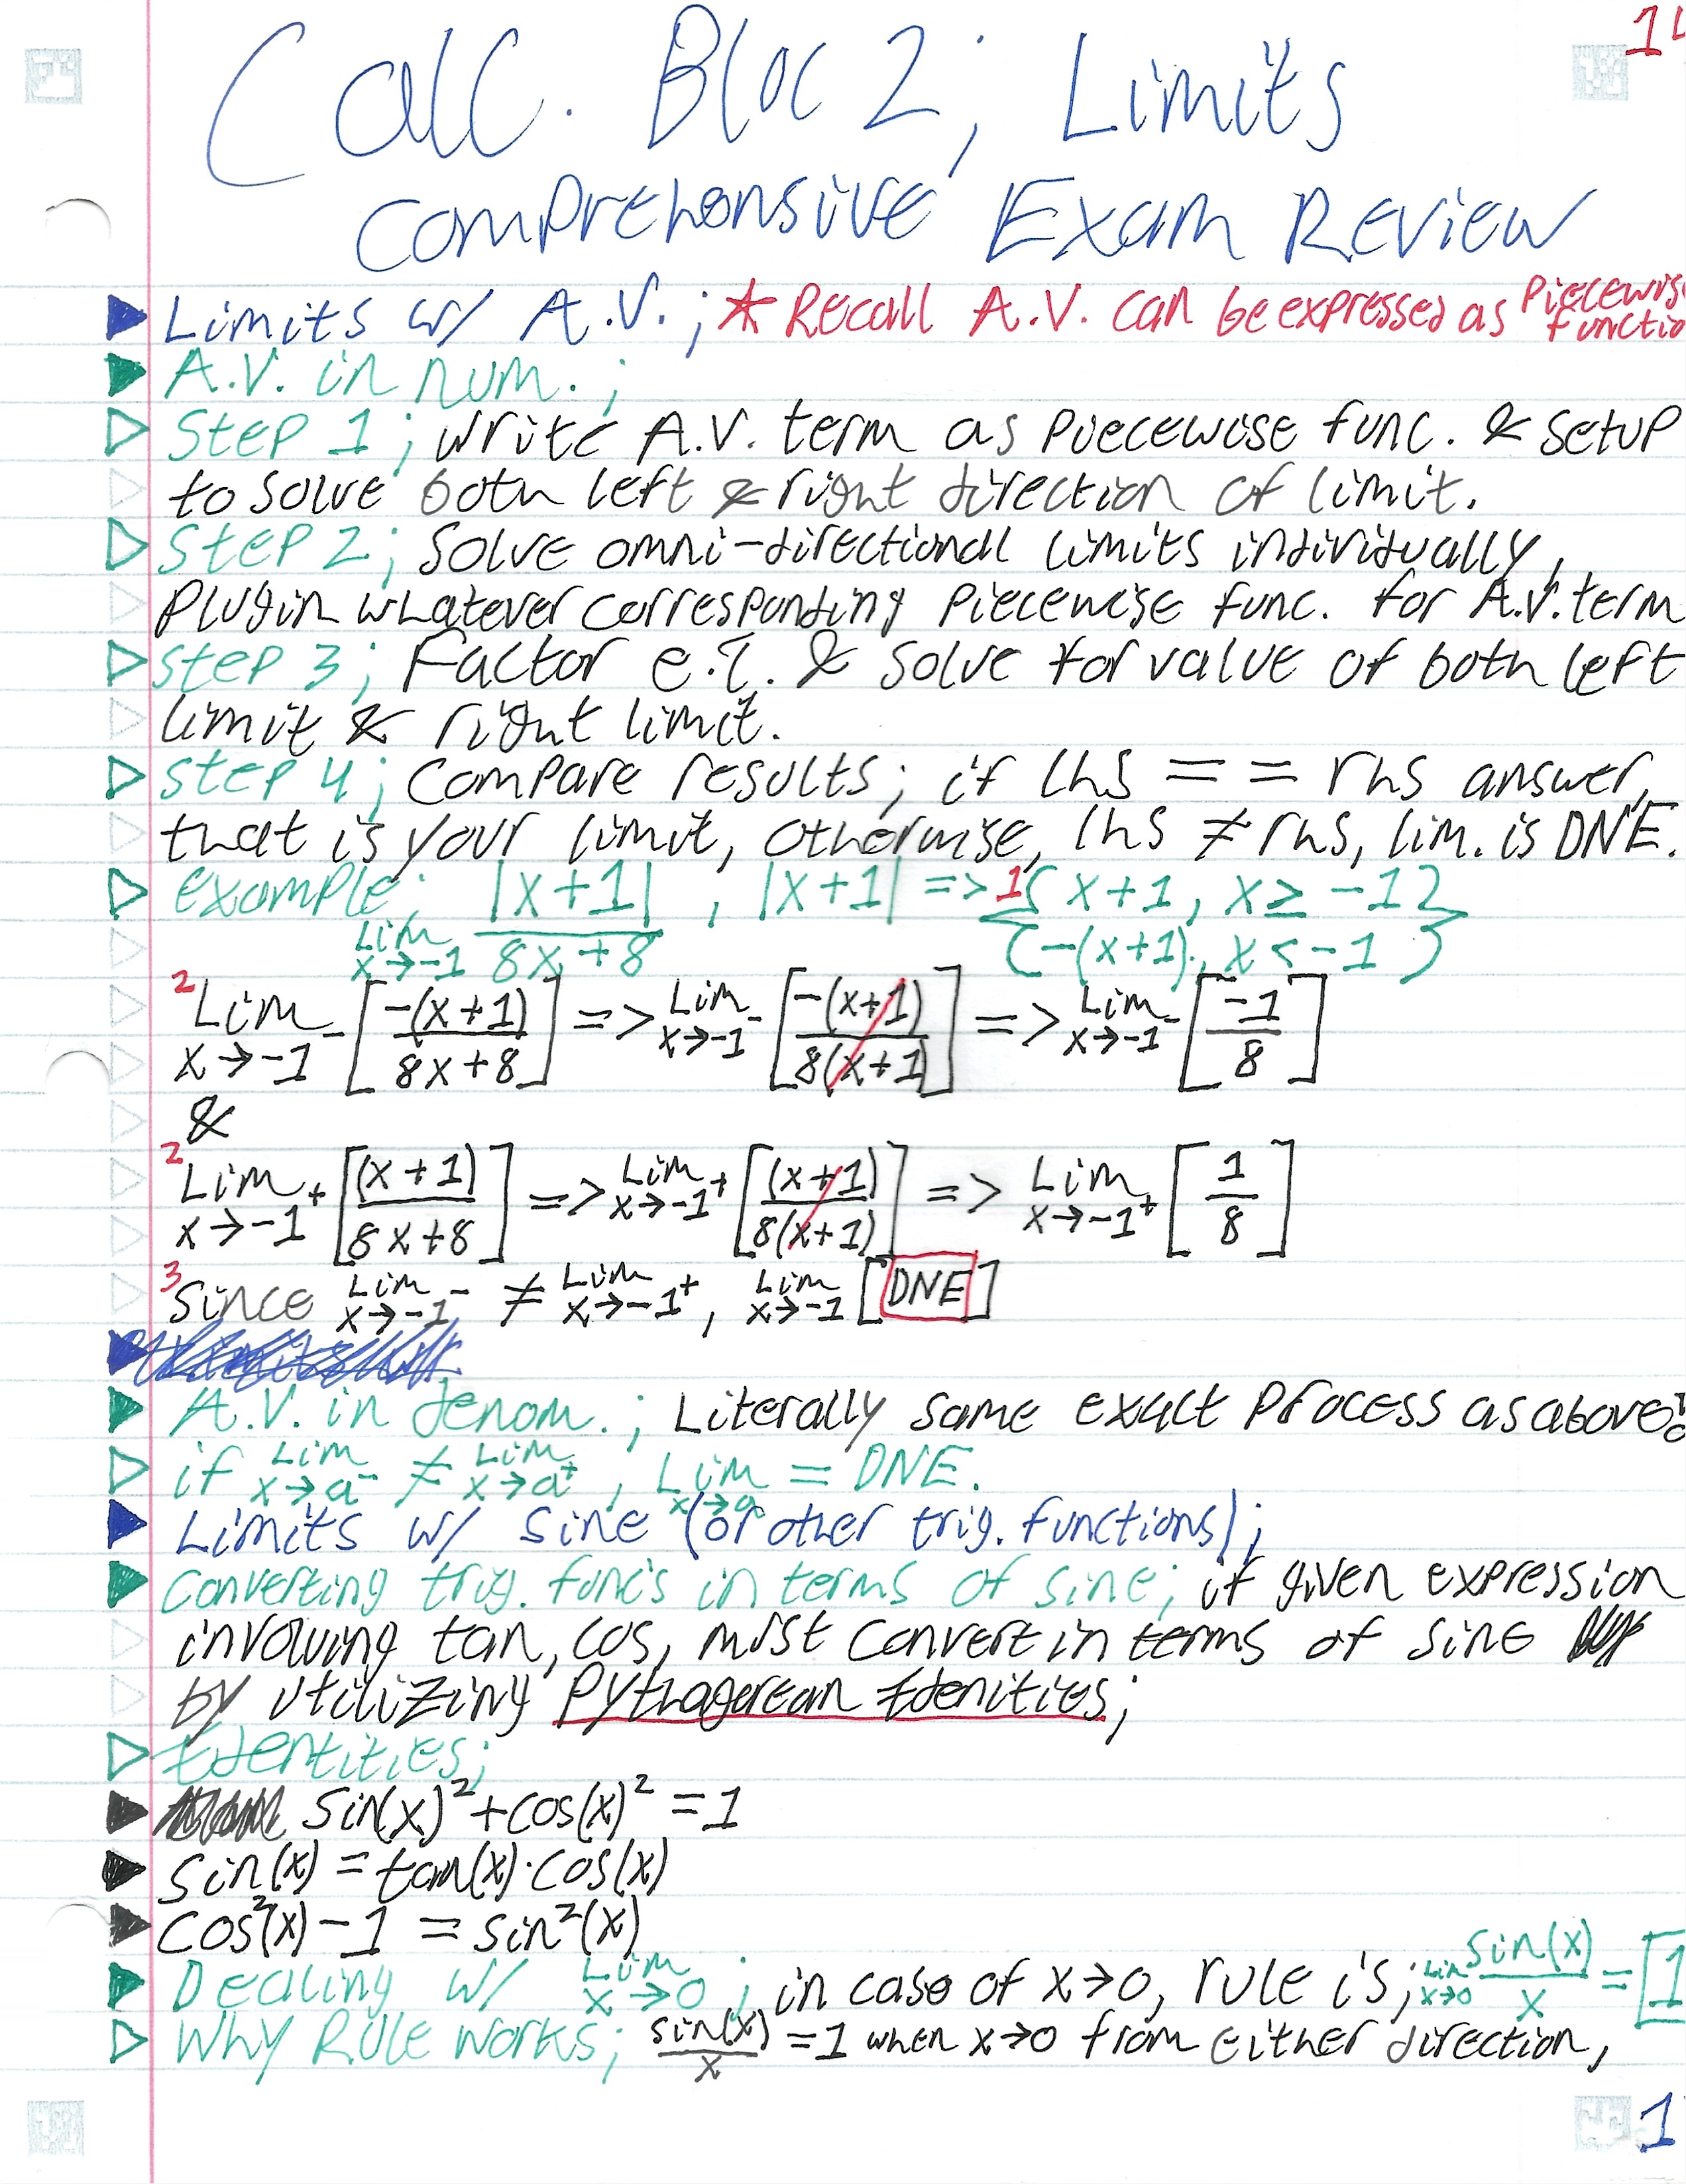 14
Calc. Bloc 2; Limits
Comprehensive Exam Review
Limits w/ A.V.; * Recall A.V. can be expressed as Piecewis functio
A.V. in num.;
Step 1; Write A.V. term as piecewise func. & setup
to solve both left & right direction of limit.
Step 2; Solve omni-directional limits individually,
plugin whatever corresponding piecewise func. for A.V. term
Step 3; Factor e.t. & solve for value of both left
limit & right limit.
Step 4; Compare results; if lhs == rhs answer,
that is your limit, otherwise, lhs ≠ rhs, lim. is DNE.
example; Lim x→-1 |x+1|/8x+8 , |x+1| => 1{x+1, x≥-1} {-(x+1), x<-1}
2 Lim x→-1⁻ [-(x+1)/8x+8] => Lim x→-1⁻ [-(x+1)/8(x+1)] => Lim x→-1⁻ [-1/8]
&
2 Lim x→-1⁺ [(x+1)/8x+8] => Lim x→-1⁺ [(x+1)/8(x+1)] => Lim x→-1⁺ [1/8]
3 Since Lim x→-1⁻ ≠ Lim x→-1⁺, Lim x→-1 [DNE]
A.V. in denom.; Literally same exact process as above!
if Lim x→a⁻ ≠ Lim x→a⁺, Lim x→a = DNE.
Limits w/ sine (or other trig. functions);
Converting trig. func's in terms of sine; if given expression
involving tan, cos, must convert in terms of sine
by utilizing Pythagorean Idenities;
Identities;
sin(x)² + cos(x)² = 1
sin(x) = tan(x)·cos(x)
cos²(x) - 1 = sin²(x)
Dealing w/ Lim x→0; in case of x→0, rule is; Lim x→0 sin(x)/x = [1
Why Rule Works; sin(x)/x = 1 when x→0 from either direction,
1